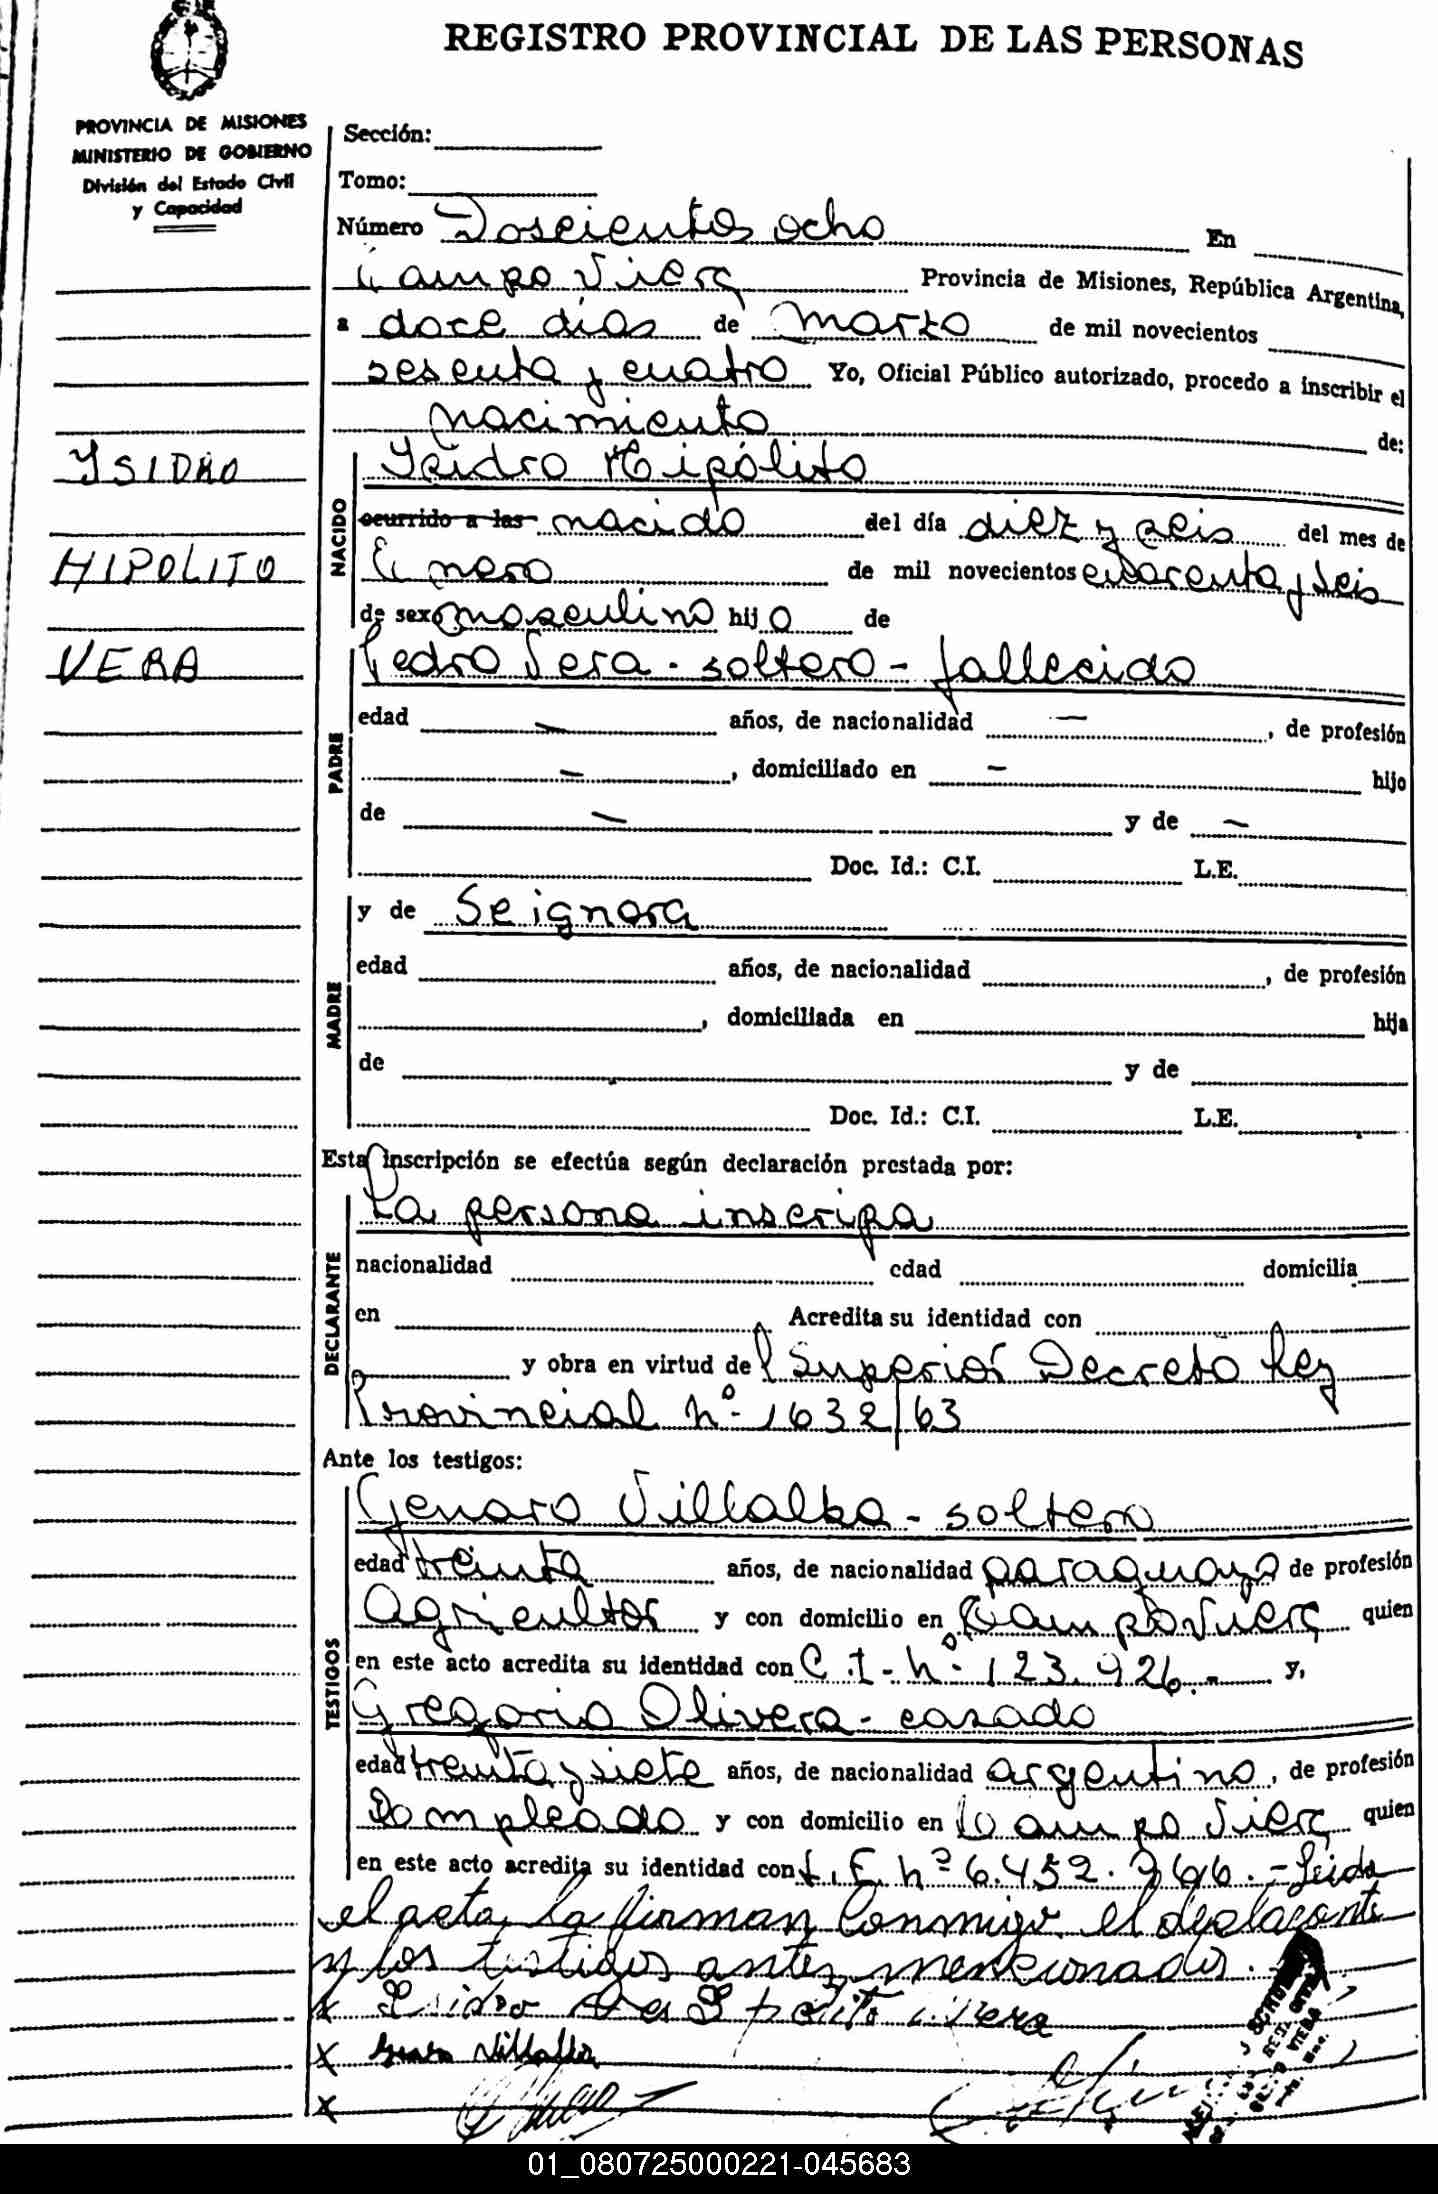 REGISTRO PROVINCIAL DE LAS PERSONAS
PROVINCIA DE MISIONES
MINISTERIO DE GOBIERNO
División del Estado Civil
y Capacidad
Sección:
Tomo:
Número Doscientos ocho En
Campo Viera Provincia de Misiones, República Argentina,
a doce dias de marzo de mil novecientos
sesenta y cuatro Yo, Oficial Público autorizado, procedo a inscribir el
nacimiento de:
YSIDRO
HIPOLITO
VERA
NACIDO
Ysidro Hipólito
ocurrido a las nacido del día diez y seis del mes de
Enero de mil novecientos cuarenta y seis
de sexo masculino hijo de
PADRE
Pedro Vera - soltero - fallecido
edad — años, de nacionalidad —, de profesión
—, domiciliado en — hijo
de — y de —
Doc. Id.: C.I. L.E.
MADRE
y de Se ignora
edad años, de nacionalidad , de profesión
, domiciliada en hija
de y de
Doc. Id.: C.I. L.E.
Esta inscripción se efectúa según declaración prestada por:
DECLARANTE
La persona inscripa
nacionalidad edad domicilia
en Acredita su identidad con
y obra en virtud del Superior Decreto Ley
Provincial nº 1632/63
Ante los testigos:
TESTIGOS
Genaro Villalba - soltero
edad treinta años, de nacionalidad paraguaya de profesión
Agricultor y con domicilio en Campo Viera quien
en este acto acredita su identidad con C.I. nº 123.926.- y,
Gregorio Olivera - casado
edad treinta y siete años, de nacionalidad argentino, de profesión
Empleado y con domicilio en Campo Viera quien
en este acto acredita su identidad con L.E. nº 6.452.766.- Leida
el acta, la firman conmigo el declarante
y los testigos antes mencionados.
x Ysidro Vera
x Genaro Villalba
x
01_080725000221-045683